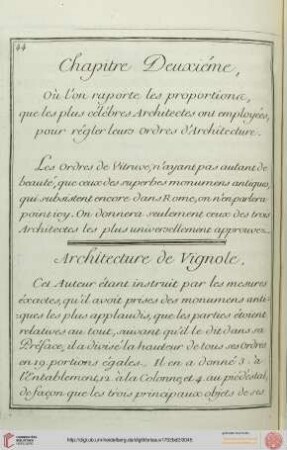 44
Chapitre Deuxiéme,
Où l'on raporte les proportions,
que les plus célébres Architectes ont employées,
pour régler leurs ordres d'Architecture.
Les Ordres de Vitruve, n'ayant pas autant de
beauté, que ceux des superbes monumens antiques,
qui subsistent encore dans Rome, on n'en parlera
point icy. On donnera seulement ceux des trois
Architectes les plus universellement approuvez.
Architecture de Vignole.
Cet Auteur étant instruit par les mesures
éxactes, qu'il avoit prises des monumens anti-
ques les plus applaudis, que les parties étoient
relatives au tout, suivant qu'il le dit dans sa
Préface, il a divisé la hauteur de tous ses ordres
en 19. portions égales. Il en a donné 3. à
l'Entablement, 12. à la Colonne, et 4. au piedestal,
de façon que les trois principaux objets de ses
http://digi.ub.uni-heidelberg.de/diglit/briseux1752bd2/0048